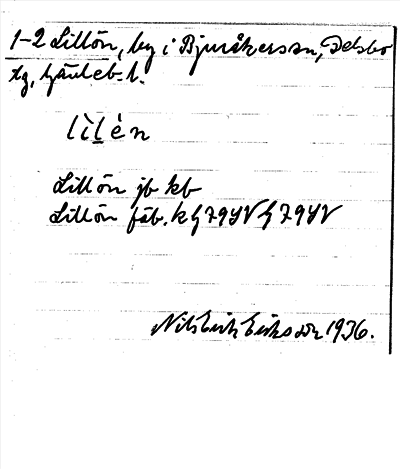 1-2 Lillön, by i Bjuråkers sn, Delsbo
tg, Gävleb. l.
lìlèn
Lillön jb kb
Lillön fäb. k G 79 SV G 79 SV
Nils Erik Eriksson 1936.